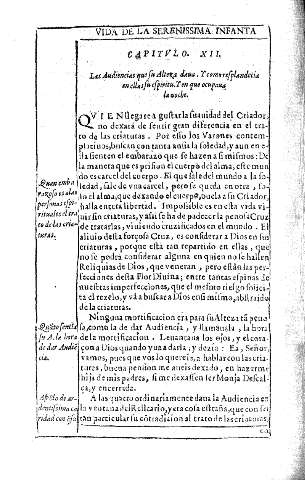 VIDA DE LA SERENISSIMA INFANTA
CAPITVLO. XII.
Las Audiencias que su Alteza dava. Y como resplandecia
en ellas su espiritu. Y en que ocupava
la noche.
QVIEN llegare a gustar la suavidad del Criador,
no dexarà de sentir gran diferencia en el tra-
to de las criaturas. Por esso los Varones contem-
plativos, buscan con tanta ansia la soledad, y aun en e-
lla sienten el embarazo que se hazen a si mismos: De
la manera que es prision el cuerpo del alma, este mun
do es carcel del cuerpo. El que sale del mundo a la so-
ledad, sale de vna carcel, pero se queda en otra, so-
lo el alma, que dexando el cuerpo, buela a su Criador,
halla entera libertad. Impossible es en esta vida vi-
vir sin criaturas, y assi se ha de padecer la penosa Cruz
de tratarlas, viviendo cruzificados en el mundo. El
alivio desta forçosa Cruz, es considerar a Dios en sus
criaturas, porque està tan repartido en ellas, que
no se podrà considerar alguna en quien no se hallen
Reliquias de Dios, que veneran, pero estàn las per-
fecciones desta Flor Divina, entre tantas espinas de
nuestras imperfecciones, que el mesmo riesgo solici-
ta el rezelo, y và a buscar a Dios en si mismo, abstraido
de la criatura.
Ninguna mortificacion era para su Alteza tã peno
sa, como la de dar Audiencia, y llamavala, la hora
de la mortificacion. Levantava los ojos, y el cora-
çon a Dios quando yva a darla, y dezia: Ea, Señor,
vamos, pues que vos lo quereis, a hablar con las cria-
turas, buena pension me aveis dexado, en hazerme
hija de mis padres, si me dexassen ser Monja Descal-
ça, y encerrada.
A las quatro ordinariamente dava la Audiencia en
la ventana del Relicario, y era cosa estraña, que con ser
tan particular su cõtradicion al trato de las criaturas,
Quan emba
razoso es a las
personas espi-
rituales el tra
to de las cria-
turas.
Quãto sentia
su A. la hora
de dar Audiẽ
cia.